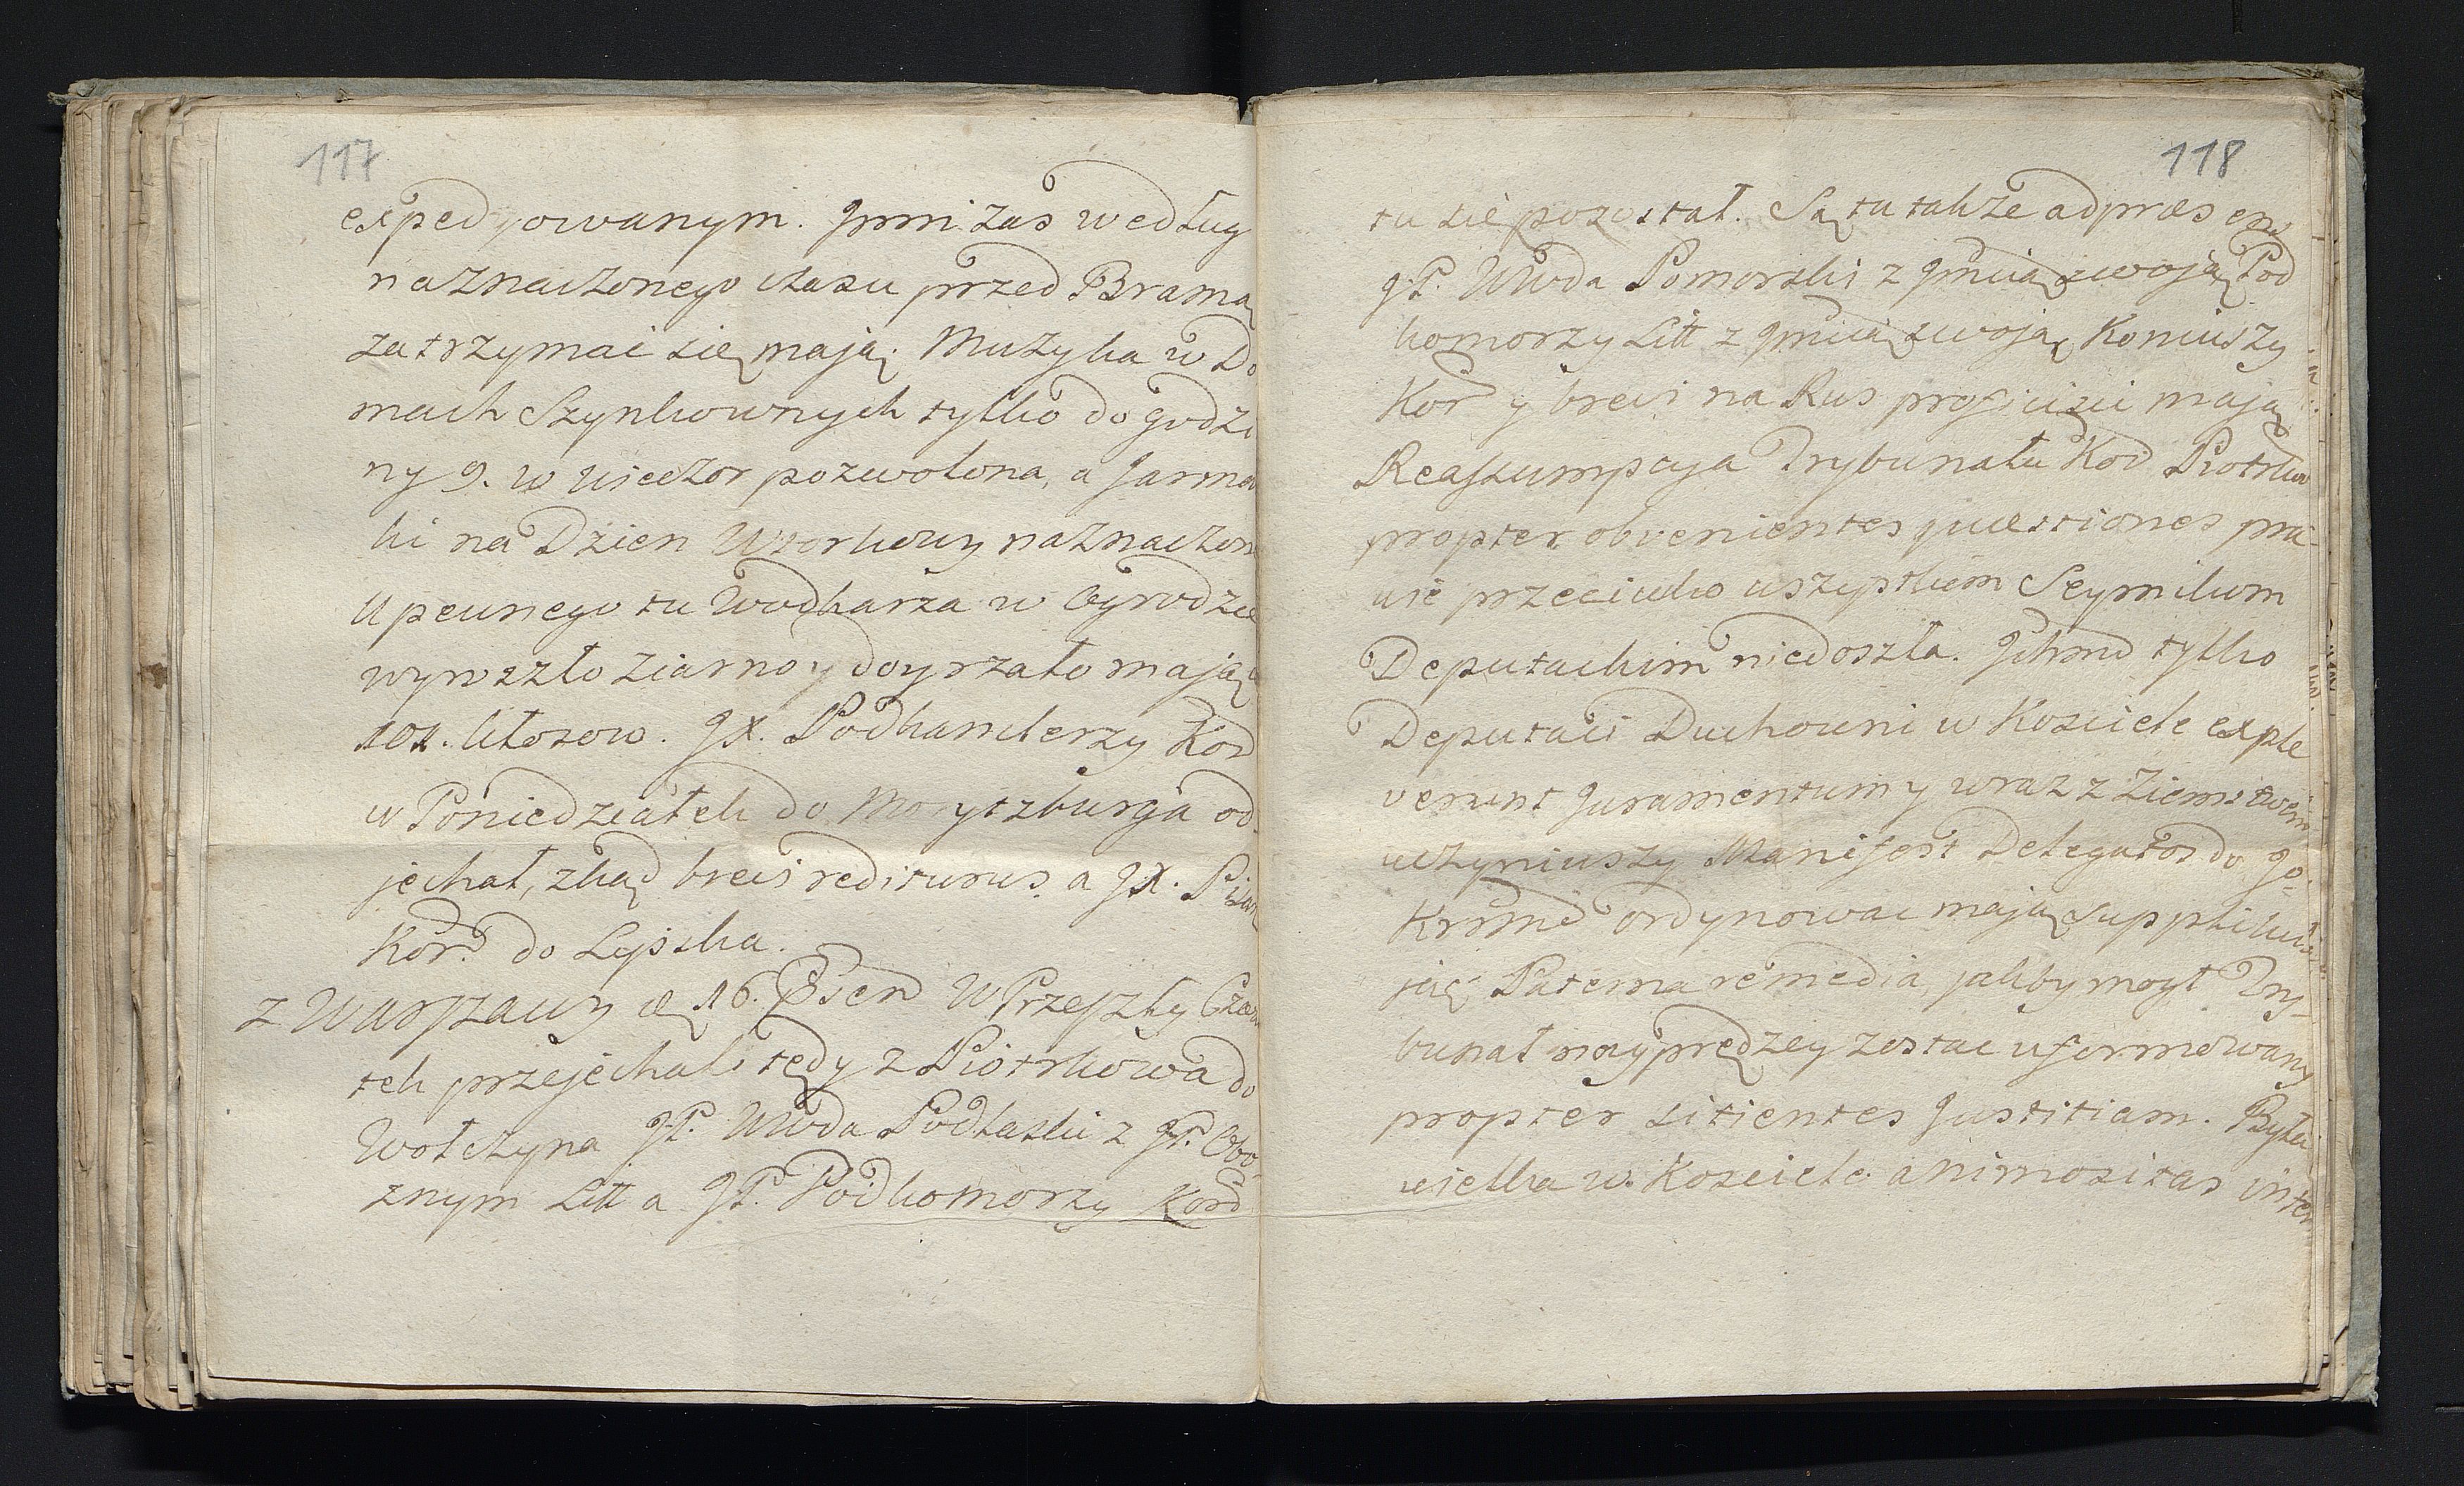 117
expedyowanym. Jnni zas według
naznaczonego czasu przed Bramą
zatrzymać się mają. Muzyka w Do
mach Szynkownych tylko do godzi
ny 9. w wieczor pozwolona, a Jarma
ki na Dzien Wtorkowy naznaczon
U pewnego tu Wodkarza w Ogrodzie
wyroszło ziarno y doyrzało mając
101. kłosow. JX. Podkanclerzy Kor
w Poniedziałek do Morytzburga od
jechał, zkąd brevi rediturus, a JX. Pisarz
Kor. do Lipska.
z Warszawy d. 16. 8bris W Przeszły Czwar
tek przejechał tędy z Piotrkowa do
Wołczyna JP. Wwda Podlaski z JP. Obo
znym Litt a JP. Podkomorzy Kor
118
tu się pozostał. Są tu także ad præsens
JP. Wwda Pomorski z Jmcią swoją, Pod
komorzy Litt z Jmcią swoją, Koniuszy
Kor y brevi na Rus proficisci mają
Reassumpcya Trybunału Kor Piotrkow
propter obvenientes quæstiones pra-
wie przeciwko wszystkim Seymikom
Deputackim niedoszła. Ichmć tylko
Deputaci Duchowni w Kosciele exple
verunt Juramentum y wraz z Ziemstwem
uczyniwszy Manifest Delegatos do Jo-
Krmci ordynować mają supplikuiąc
Paterna remedia, jakby mogł Try-
bunał nayprędzey zostać uformowany
propter sitientes Justitiam. Była
wielka w Kosciele animositas inter